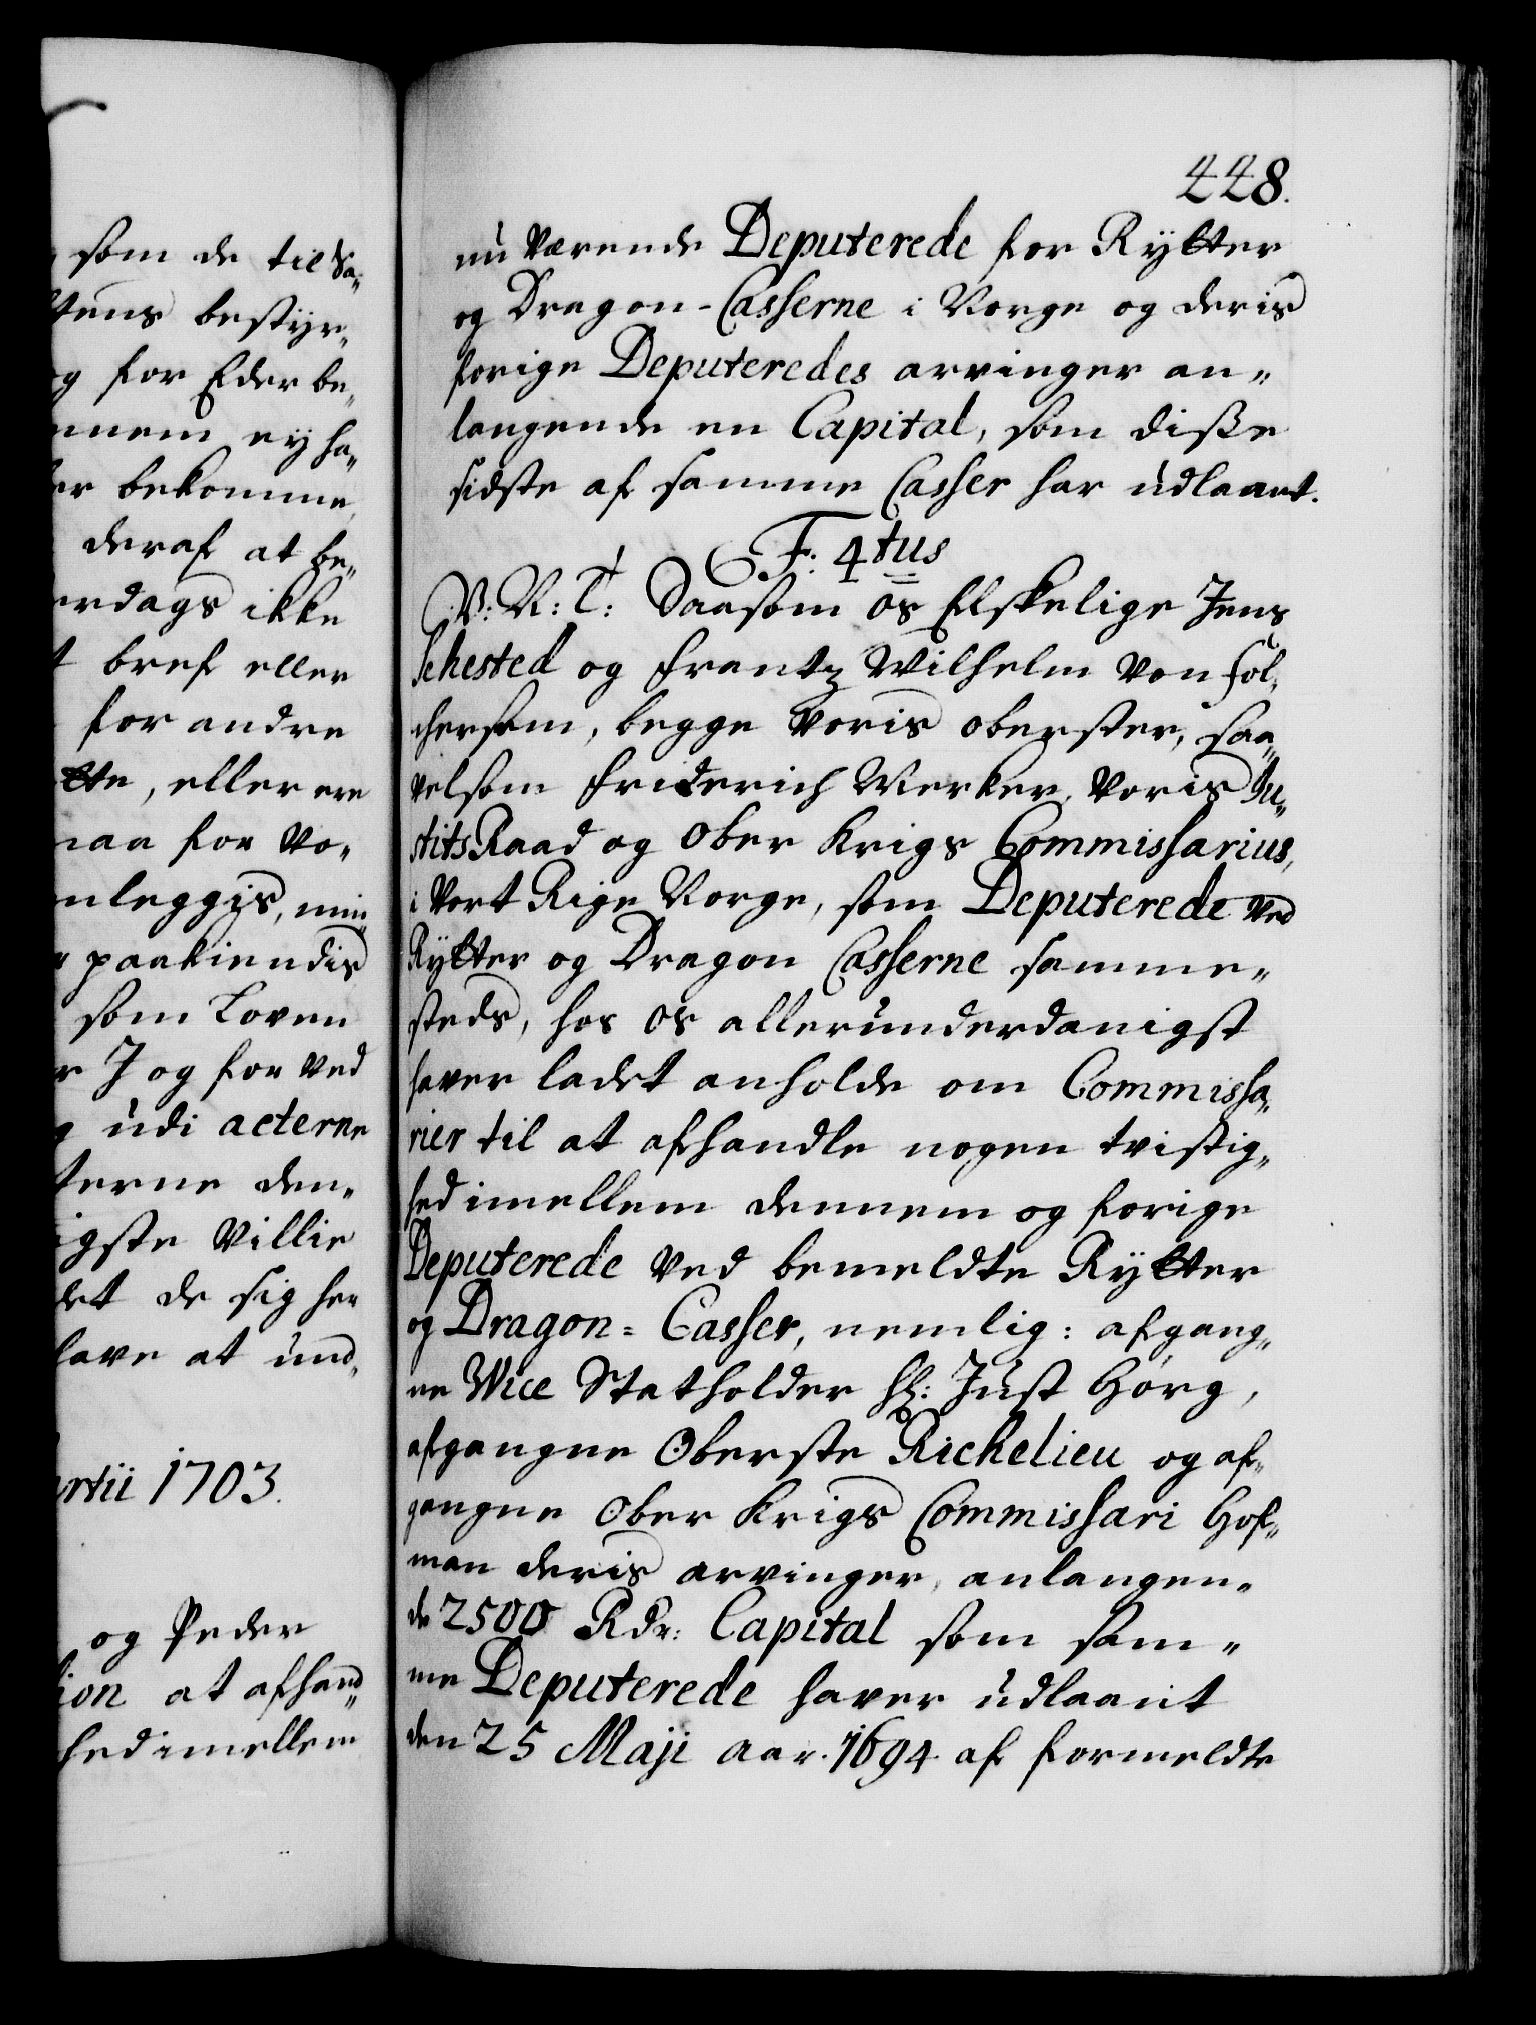 som de til Sa„
tens bestyr„
og for Eder be„
nnem ey ha„
er bekomme,
deraf at be„
erdags ikke
t bref eller
for andre
tte, eller ere
naa for Vo„
nleggis, min„
paakiendis
som Loven
r J og for Ved
g udi acterne
terne den„
igste Villie
det de sig her
lave at und„
artii 1703.
og Peder
ion at afhand„
hed imellem
448.
nu Værende Deputerede for Rytter
og Dragon-Casserne i Norge og deris
forige Deputeredes arvinger an„
langende en Capital, som diße
sidste af samme Casser har udlaant.
F: 4tus
V: N: T: Saasom os Elskelige Jens
Sehested og Frantz Wilhelm Von Föl„
chersom, begge Voris Oberster, saa„
velsom Friderich Werker, Voris Ju„
stits Raad og Ober Krigs Commissarius,
i Vort Rige Norge, som Deputerede Ved
Rytter og Dragon Casserne samme„
steds, hos os allerunderdanigst
haver ladet anholde om Commissa„
rier til at afhandle nogen tvistig„
hed imellem dennem og forige
Deputerede Ved bemeldte Rytter
og Dragon= Casser, nemlig: afgang„
ne Vice Statholder Hr: Just Hörg,
afgangne Oberste Richelieu og af„
gangne Ober Krigs Commissari Hof„
man deris arvinger, anlangen„
de 2500 Rdr: Capital som sam„
me Deputerede haver udlaant
den 25 Maji Aar. 1694 af formeldte